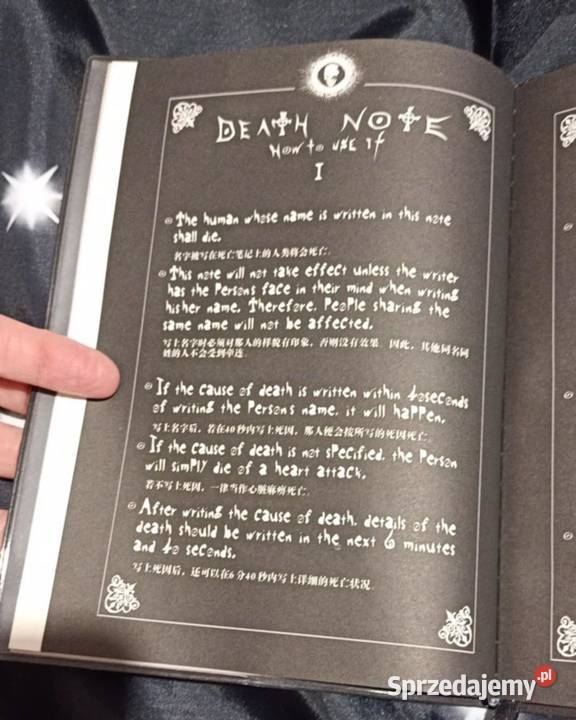 DEATH NOTE
How to USE It
I
The human whose name is written in this note
shall die.
名字被写在死亡笔记上的人类将会死亡.
This note will not take effect unless the writer
has the Persons face in their mind when writing
hisher name. Therefore. PeoPle sharing the
same name will not be affected.
写上名字时必须对那人的样貌有印象，否则没有效果。因此，其他同名同
姓的人不会受到牵连.
If the cause of death is written within 40seconds
of writing the Persons name. it will haPPen.
写上名字后，若在40秒内写上死因，那人便会按所写的死因死亡.
If the cause of death is not sPecified. the Person
will simPly die of a heart attack.
若不写上死因，一律当作心脏麻痹死亡.
After writing the cause of death. details of the
death should be written in the next 6 minutes
and 40 seconds.
写上死因后，还可以在6分40秒内写上详细的死亡状况.
Sprzedajemy.pl